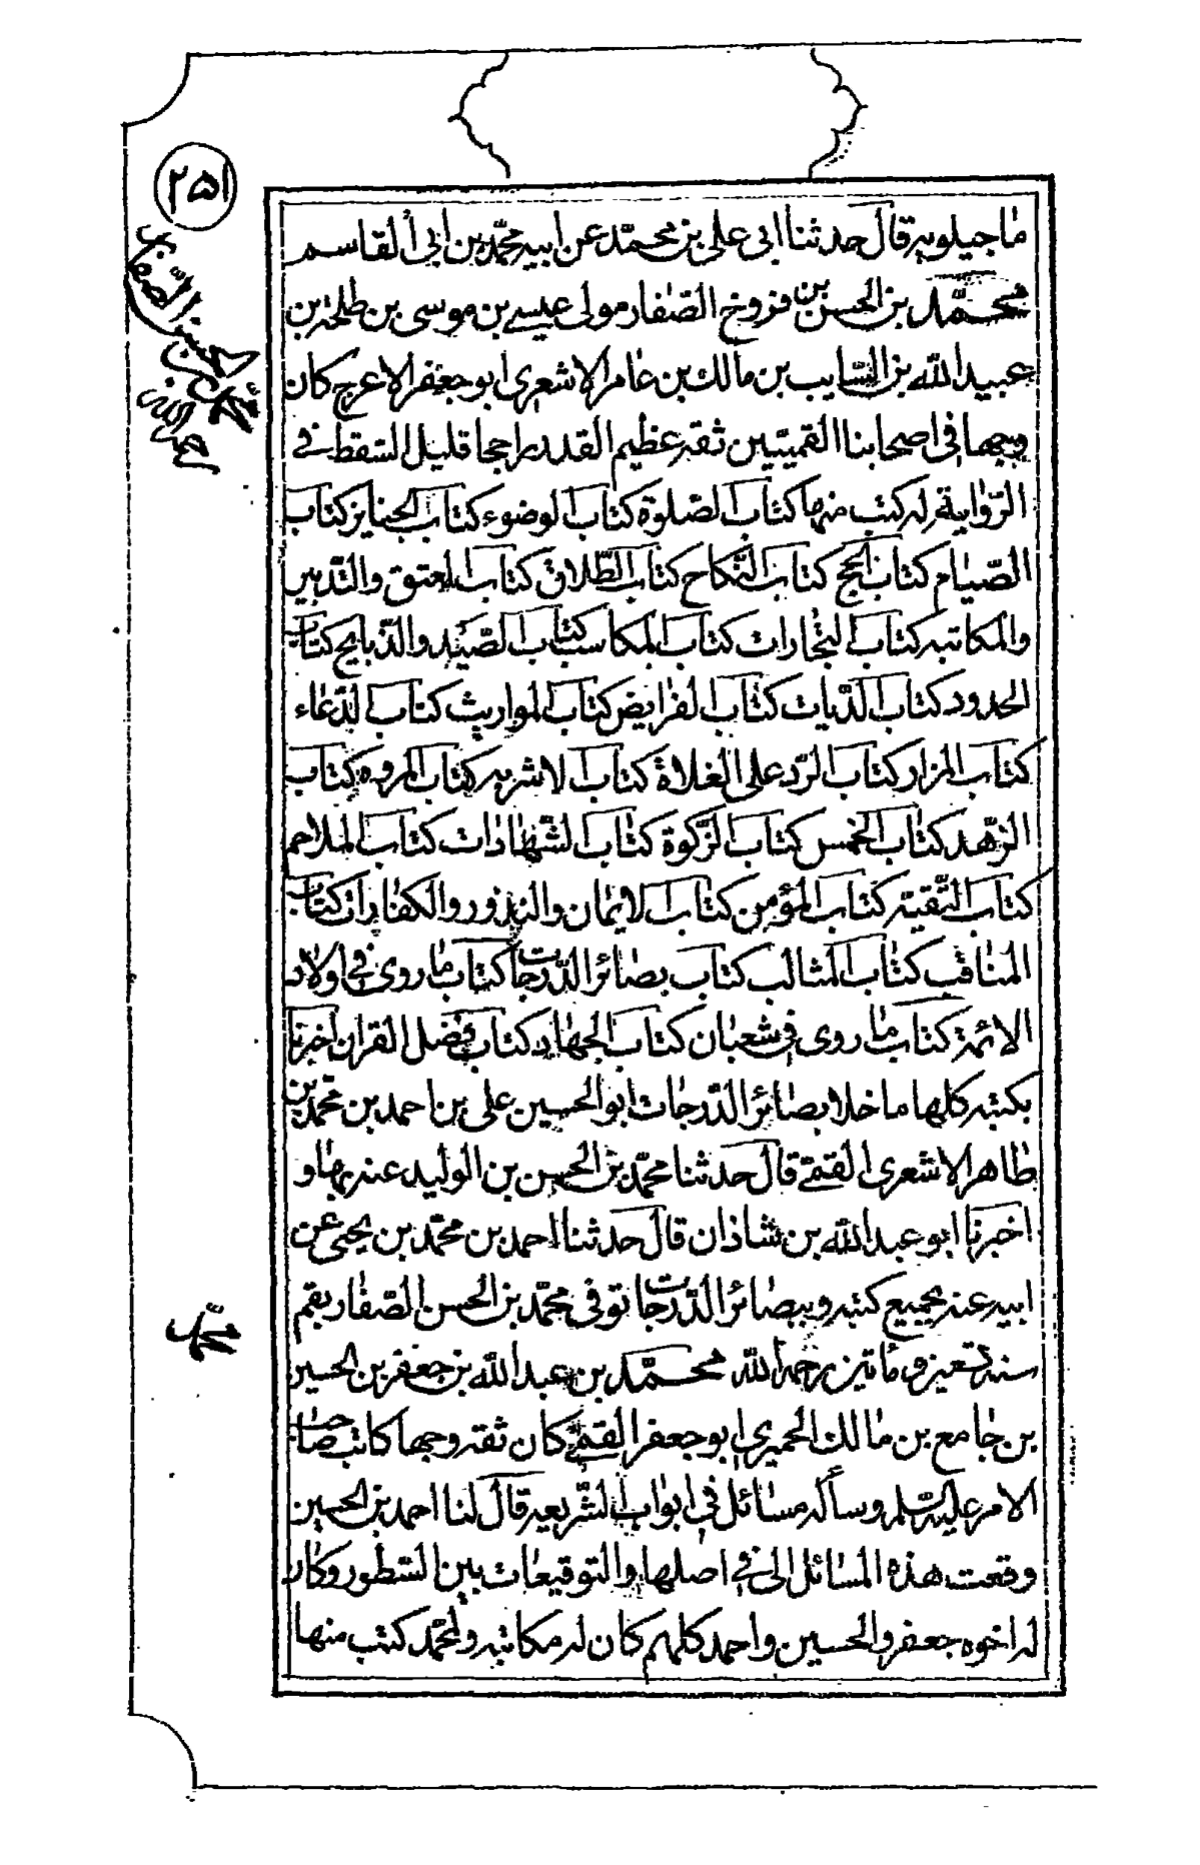 ۲۵۱
ماجيلويه قال حدثنا ابى على بن محمّد عن ابيه محمّد بن ابى القاسم
محمّد بن الحسن بن فروخ الصّفار مولى عيسى بن موسى بن طلحة بن
عبيد الله بن السّايب بن مالك بن عامر الاشعرى ابو جعفر الاعرج كان
وجها فى اصحابنا القميّين ثقه عظيم القدر راجحا قليل السّقط فى
الرّواية له كتب منها كتاب الصّلوة كتاب الوضوء كتاب الجنايز كتاب
الصّيام كتاب الحج كتاب النّكاح كتاب الطّلاق كتاب العتق والتّدبير
والمكاتبه كتاب التجارات كتاب المكاسب كتاب الصّيد والذّبايح كتاب
الحدود كتاب الدّيات كتاب الفرايض كتاب المواريث كتاب الدّعاء
كتاب المزار كتاب الرّد على الغلاة كتاب الاشربه كتاب المروه كتاب
الزّهد كتاب الخمس كتاب الزّكوة كتاب الشّهادات كتاب الملاحم
كتاب التّقيّه كتاب المؤمن كتاب الايمان والنذور والكفارات كتاب
المناقب كتاب المثالب كتاب بصائر الدّرجات كتاب ما روى فى اولاد
الائمة كتاب ما روى فى شعبان كتاب الجهاد كتاب فضل القران اخبرنا
بكتبه كلها ما خلا بصائر الدّرجات ابو الحسين على بن احمد بن محمّد بن
طاهر الاشعرى القمّى قال حدثنا محمّد بن الحسن بن الوليد عنه بها و
اخبرنا ابو عبد الله بن شاذان قال حدثنا احمد بن محمّد بن يحيى عن
ابيه عنه بجميع كتبه وببصائر الدّرجات توفى محمّد بن الحسن الصّفار بقم
سنة تسعين ومأتين رحمه الله محمّد بن عبد الله بن جعفر بن الحسين
بن جامع بن مالك الحميرى ابو جعفر القمّى كان ثقه وجها كاتب صاحب
الامر عليه السّلم وسأله مسائل فى ابواب الشّريعه قال لنا احمد بن الحسين
وقعت هذه المسائل الى فى اصلها والتوقيعات بين السّطور وكان
له اخوه جعفر والحسين واحمد كلهم كان له مكاتبه ولمحمّد كتب منها
محمد بن الحسن الصّفار
رحمه الله
محمّد